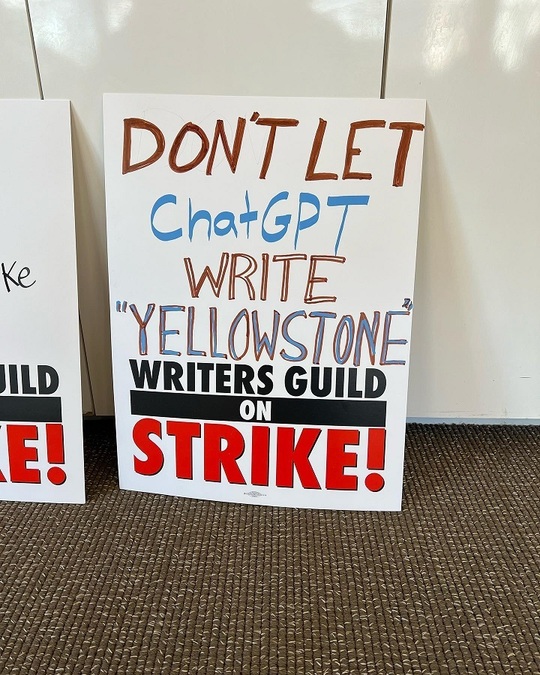 DON'T LET
ChatGPT
WRITE
"YELLOWSTONE"
WRITERS GUILD
ON
STRIKE!
ke
UILD
KE!